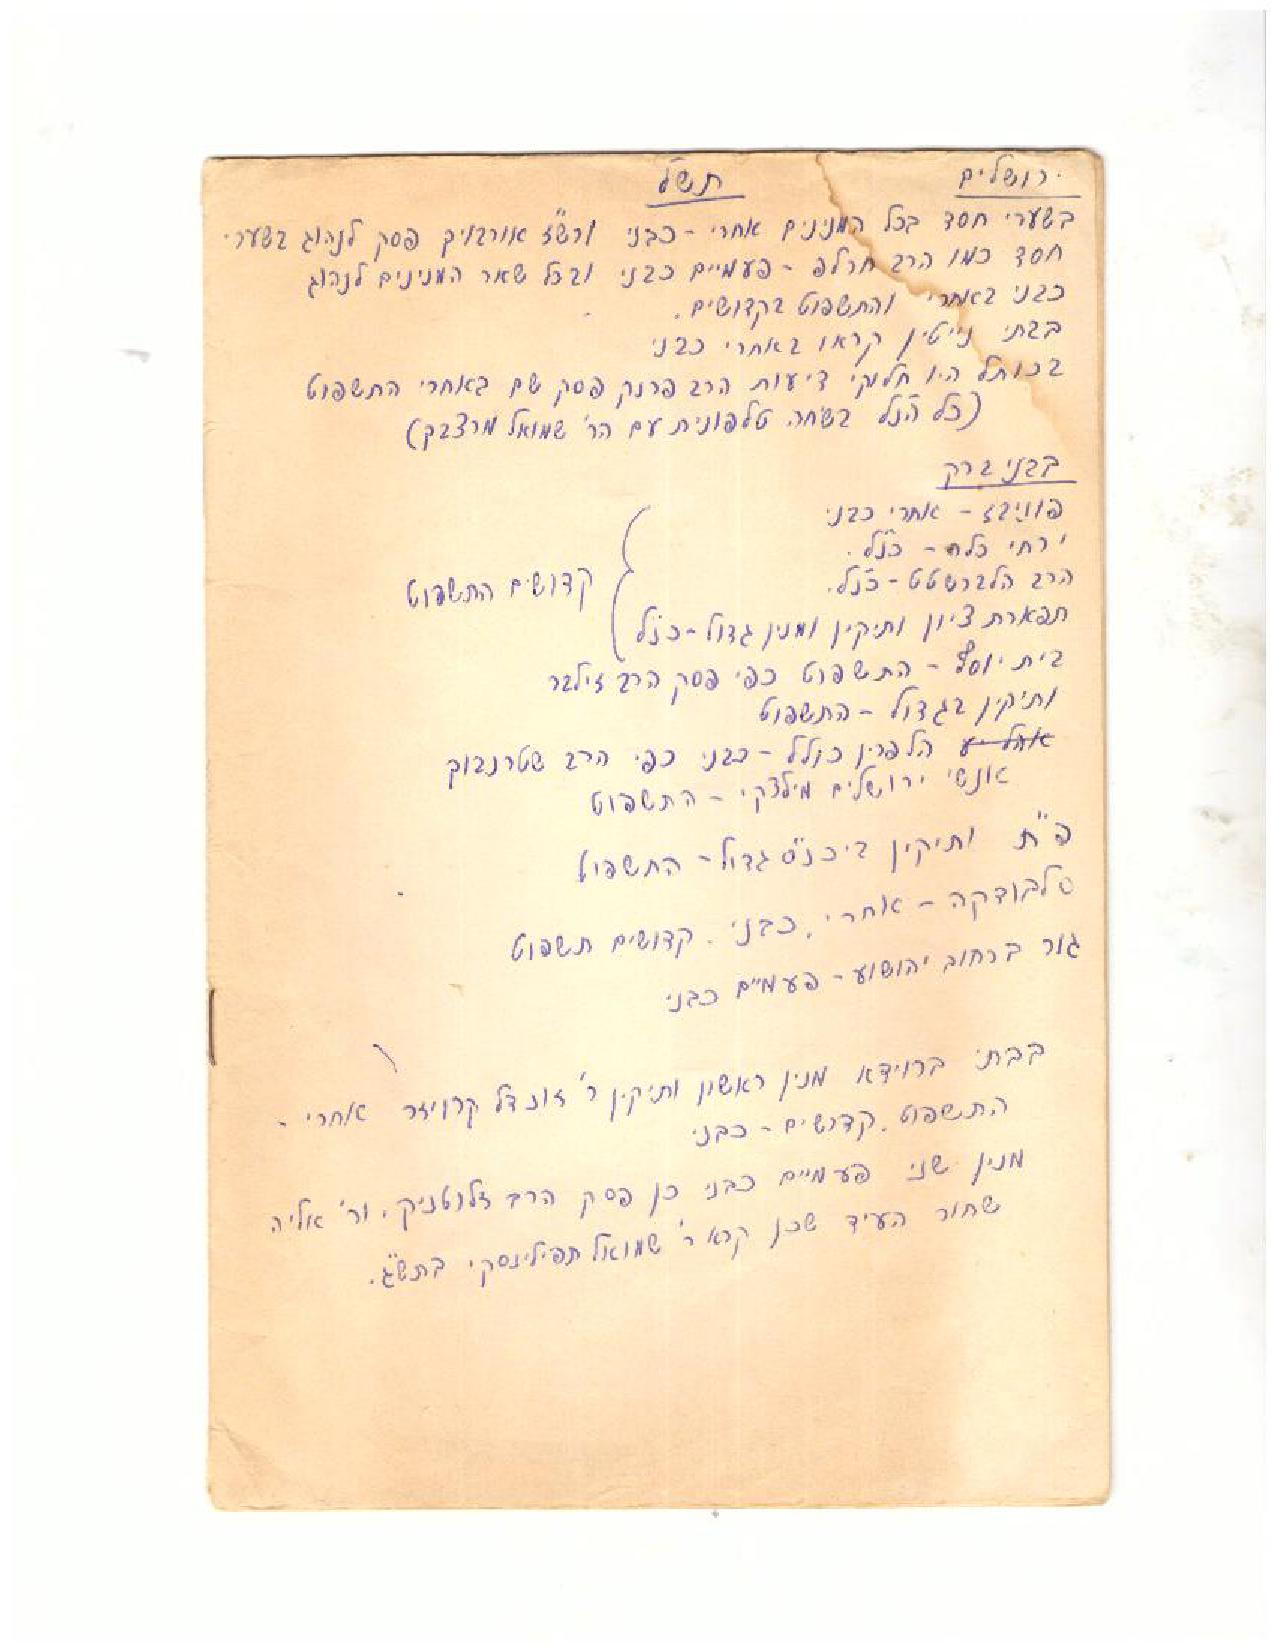 ירושלים תשל
בשערי חסד בכל המנינים אחרי - כבני ורש"ז אוירבויך פסק לנהוג בשערי
חסד כמו הרב חרלפ - פעמיים כבני ובכל שאר המנינים לנהוג
כבני באחרי והתשפוט בקדושים.
בבתי נייטין קראו באחרי כבני
בכותל היו חלוקי דיעות הרב פרנק פסק שם באחרי התשפוט
(כל הנ"ל בשחה טלפונית עם הר' שמואל מרצבך)
בבני ברק
פוניבז - אחרי כבני
ירחי כלה - כנ"ל.
הרב הלברשטט - כנ"ל.
תפארת ציון ותיקין ומנין גדול - כנ"ל
קדושים התשפוט
בית יוסף - התשפוט כפי פסק הרב זילבר
ותיקין בגדול - התשפוט
הלפרין כולל - כבני כפי הרב שטרנבוך
אנשי ירושלים מילצקי - התשפוט
פ"ת ותיקין ביכנ"ס גדול - התשפוט
סלבודקה - אחרי, כבני. קדושים תשפוט
גור ברחוב יהושוע - פעמיים כבני
בבתי ברוידא מנין ראשון ותיקין ר' זונדל קרויזר אחרי -
התשפוט. קדושים - כבני
מנין שני פעמיים כבני כן פסק הרב זלוטניק, ור' אליה
שחור העיד שכן קרא ר' שמואל תפילינסקי בתש"ג.